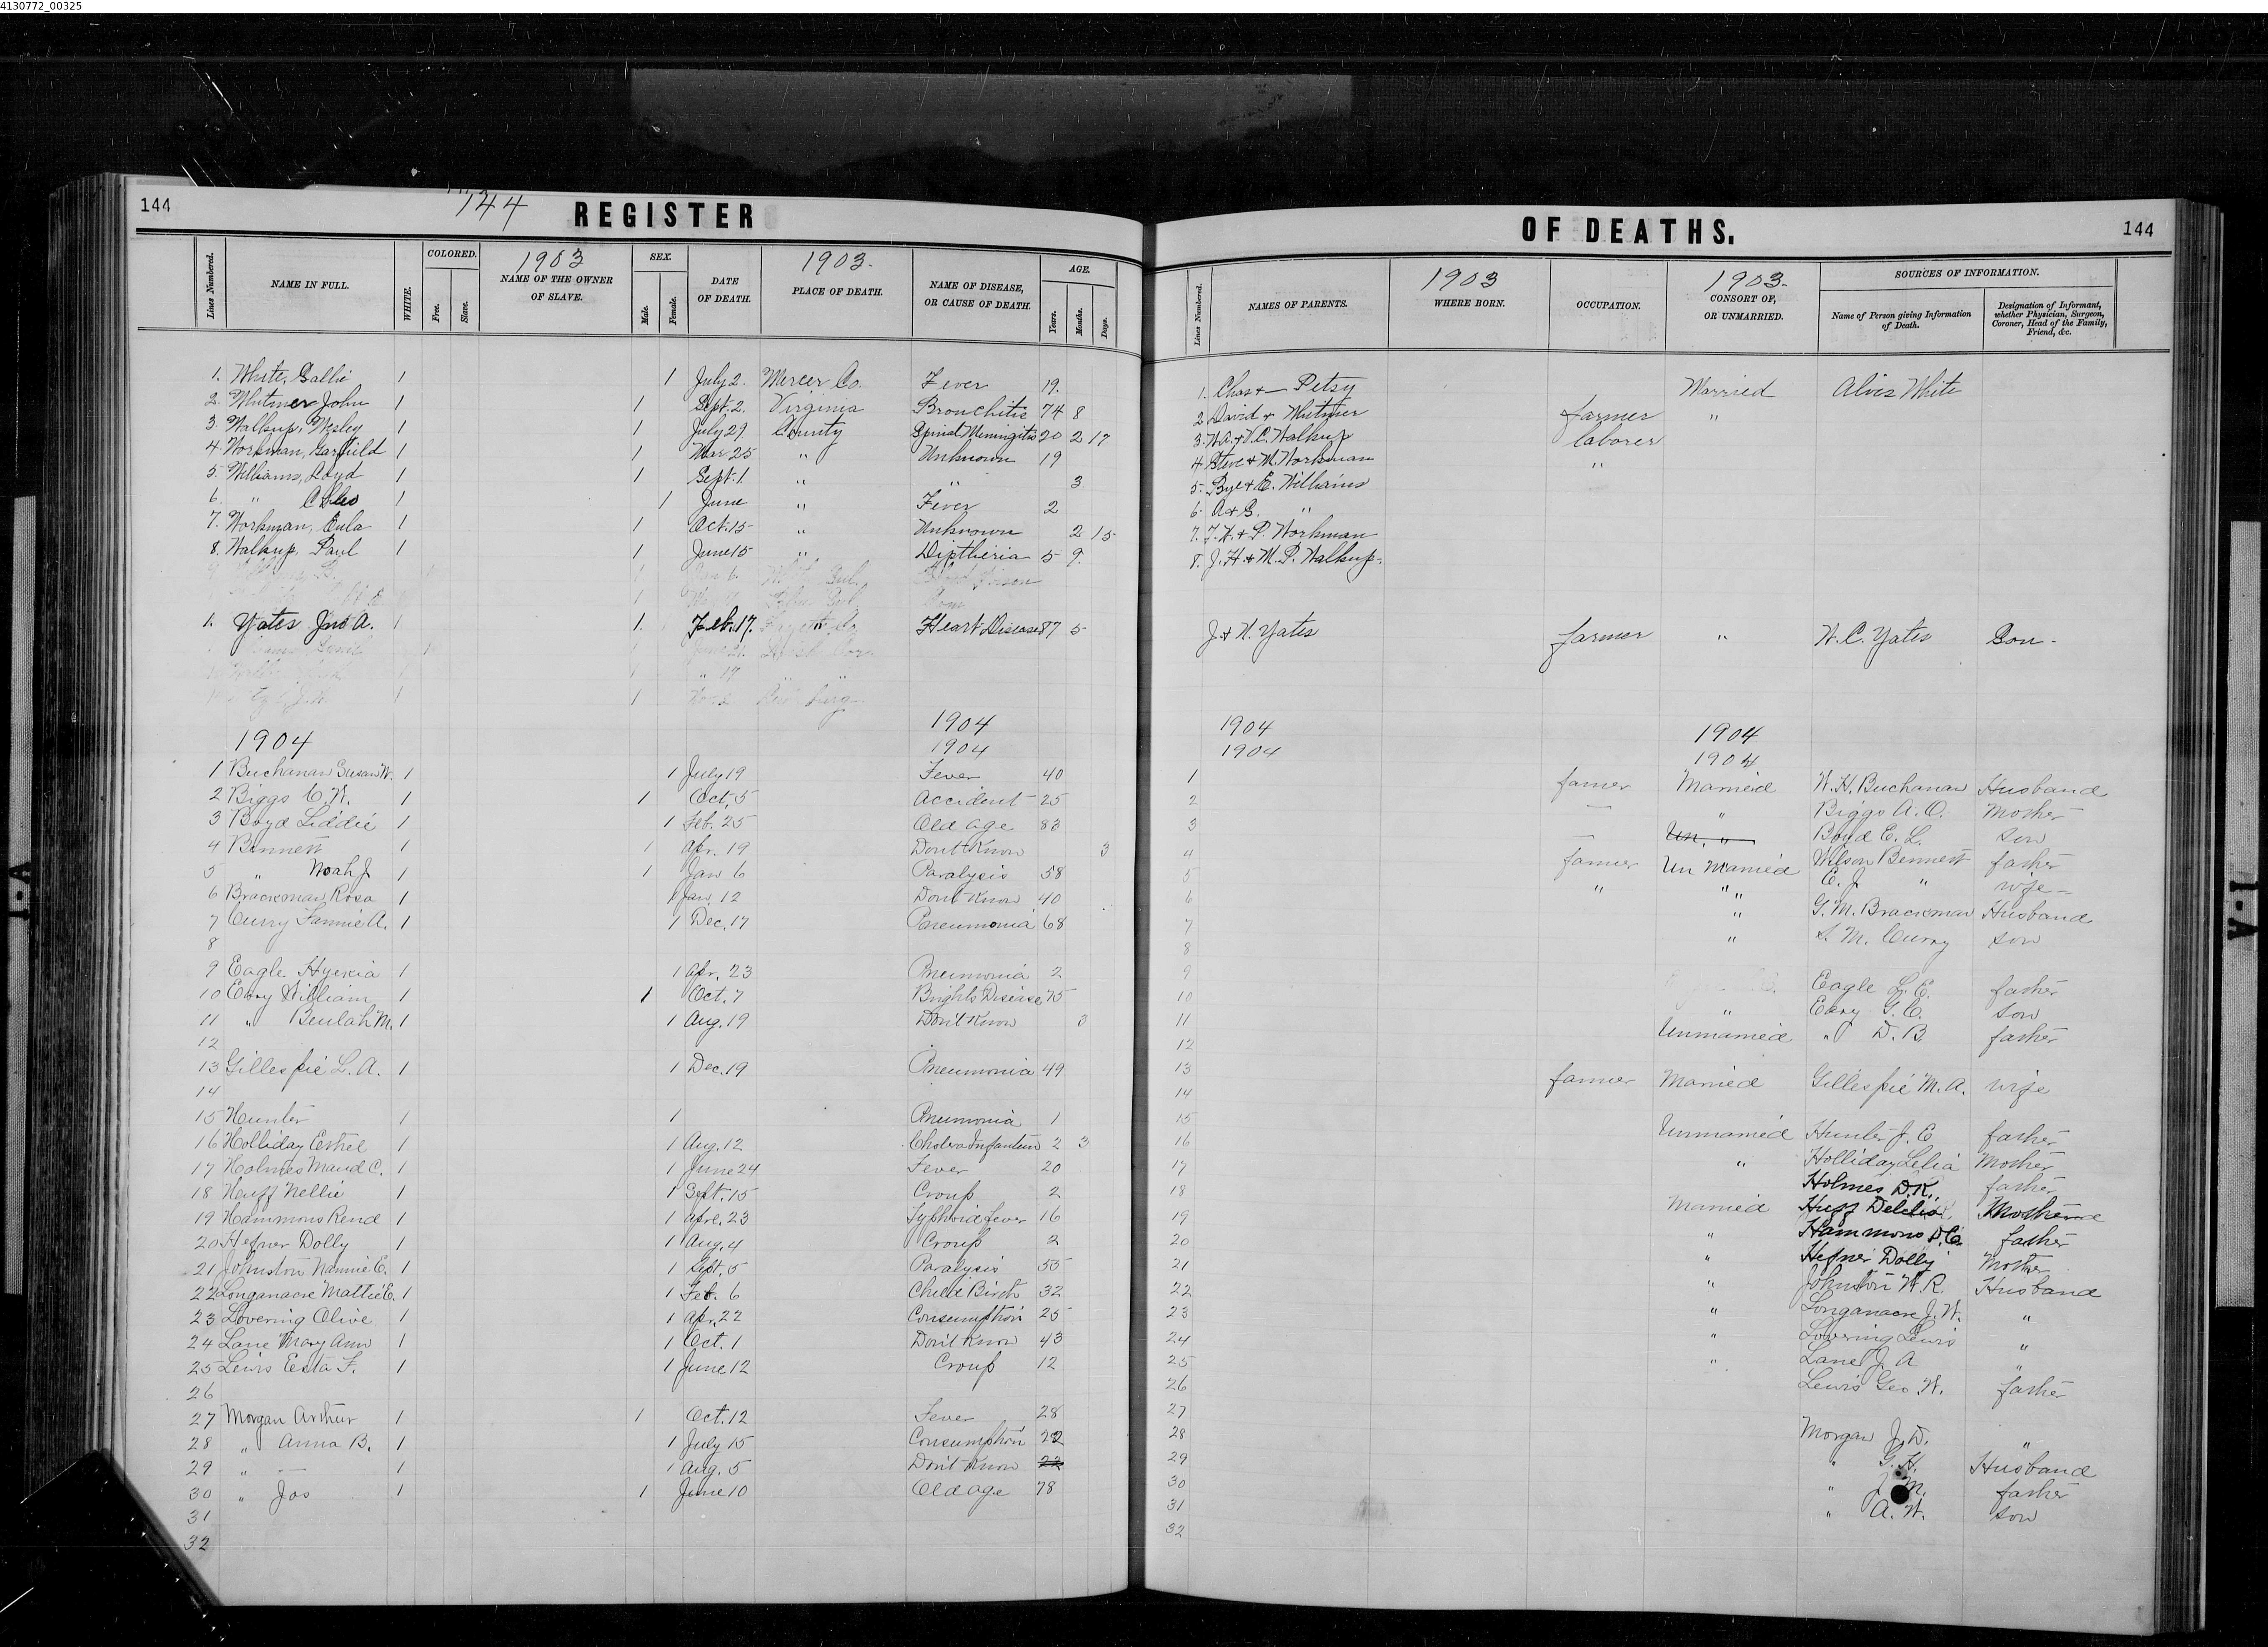 4130772_00325
144
144
REGISTER
NAME IN FULL.
WHITE.
COLORED.
Free.
Slave.
1903
NAME OF THE OWNER
OF SLAVE.
SEX.
Male.
Female.
DATE
OF DEATH.
1903.
PLACE OF DEATH.
NAME OF DISEASE,
OR CAUSE OF DEATH.
AGE.
Years.
Months.
Days.
Lines Numbered.
1. White, Sallie 1 1 July 2. Mercer Co. Fever 19.
2. Whitmer John 1 1 Sept. 2. Virginia Bronchitis 74 8
3. Walkup, Wesley 1 1 July 29 County Spinal Meningitis 20 2 17
4. Workman, Garfield 1 1 Mar 25 " Unknown 19
5. Williams, Loyd 1 1 Sept. 1 " " 3
6. " 1 1 June " Fever 2
7. Workman, Eula 1 1 Oct. 15 " Unknown 2 15
8. Walkup, Paul 1 1 June 15 " Diptheria 5 9.
1. Yates Jno A. 1 1. Feb. 17. Heart Disease 87 5
1904
1904
1904
1 Buchanan Susan W. 1 1 July 19 Fever 40
2 Biggs C. W. 1 1 Oct. 5 Accident 25
3 Boyd Liddie 1 1 Feb. 25 Old age 83
4 Bennett 1 1 Apr. 19 Don't Know 3
5 " Noah J 1 1 Jan 6 Paralysis 58
6 Brackman Rosa 1 1 Jan. 12 Don't Know 40
7 Curry Fannie A. 1 1 Dec. 17 Pneumonia 68
8
9 Eagle 1 1 Apr. 23 Pneumonia 2
10 Eary William 1 1 Oct. 7 Brights Disease 75
11 " Beulah M. 1 1 Aug. 19 Don't Know 3
12
13 Gillespie L. A. 1 1 Dec. 19 Pneumonia 49
14
15 Hunter 1 1 Pneumonia 1
16 Holliday Esthel 1 1 Aug. 12 Cholera Infantum 2 3
17 Holmes Maud C. 1 1 June 24 Fever 20
18 Huff Nellie 1 1 Sept. 15 Croup 2
19 Hammons Rend 1 1 Apr. 23 Typhoid fever 16
20 Hefner Dolly 1 1 Aug. 4 Croup 2
21 Johnston Nannie E. 1 1 Sept. 5 Paralysis 55
22 Longanacre Mattie E. 1 1 Feb. 6 Child Birth 32
23 Lovering Olive 1 1 Apr. 22 Consumption 25
24 Lane Mary Ann 1 1 Oct. 1 Don't Know 43
25 Lewis Esta F. 1 1 June 12 Croup 12
26
27 Morgan Arthur 1 1 Oct. 12 Fever 28
28 " Anna B. 1 1 July 15 Consumption 22
29 " — 1 1 Aug. 5 Don't Know 22
30 " Jas 1 1 June 10 Old age 78
31
32
OF DEATHS.
144
Lines Numbered.
NAMES OF PARENTS.
1903
WHERE BORN.
OCCUPATION.
1903.
CONSORT OF,
OR UNMARRIED.
SOURCES OF INFORMATION.
Name of Person giving Information
of Death.
Designation of Informant,
whether Physician, Surgeon,
Coroner, Head of the Family,
Friend, &c.
1. Chas + — Petsy Married Alvis White
2 David + Whitmer farmer "
3. W.A. + V.C. Walkup laborer
4 Steve + M. Workman "
5. Bye + E. Williams
6. A + G. "
7. + P. Workman
8. J. H. + M. P. Walkup.
J. + N. Yates farmer " W. C. Yates Son.
1904 1904
1904 1904
1 farmer Married W. H. Buchanan Husband
2 — " Biggs A. O. Mother
3 — Un. " Boyd E. L. son
4 farmer Un Married Wilson Bennett father
5 " " E. J. " wife
6 " G. M. Brackman Husband
7 " S. M. Curry son
8
9 Eagle L. E. father
10 " Eary G. C. son
11 Unmarried " D. B. father
12
13 farmer Married Gillespie M. A. wife
14
15 Unmarried Hunter J. E father
16 " Holliday Lelia Mother
17 Holmes D. K. father
18 Married Huff Mother
19 " Hammons D. C. father
20 " Hefner Dolly Mother
21 " Johnston W. R. Husband
22 " Longanacre J. W. "
23 " Lovering Lewis "
24 " Lane J. A "
25 Lewis Geo. W. father
26
27 Morgan J. D. "
28 " G. H. Husband
29 " J. M. father
30 " A. W. son
31
32